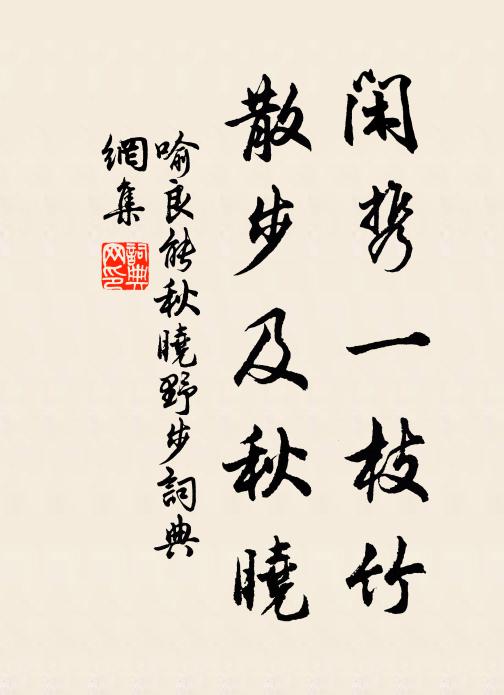 闲携一枝竹
散步及秋曉
喻良能秋曉野步詞典
網集
詞典
网印